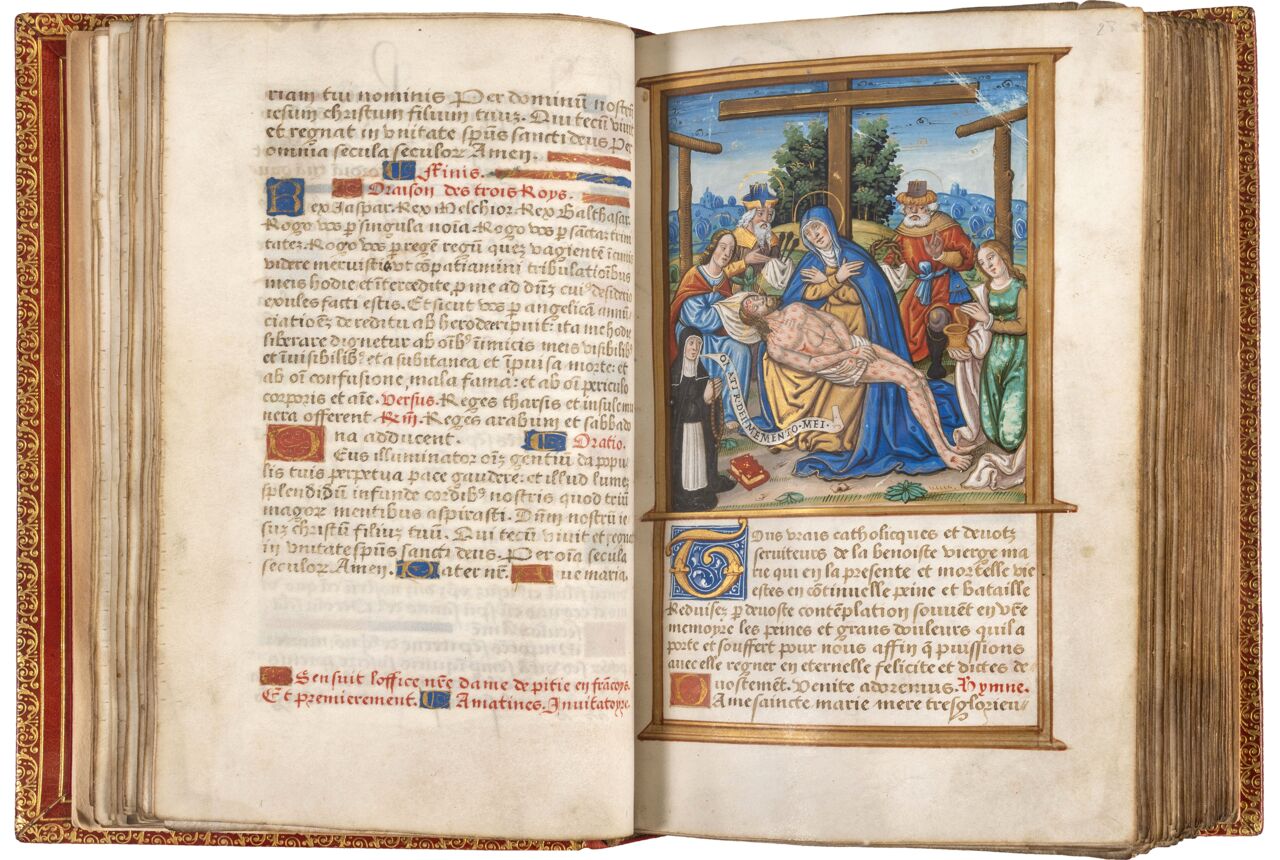 riam tui nominis. Per dominū nostrū
iesum christum filium tuuz. Qui tecū viuit
et regnat in vnitate spūs sancti deus. Per
omnia secula seculorz Amen.
ffinis.
Oraison des trois Roys.
Rex Jaspar. Rex Melchior. Rex Balthasar.
Rogo vos p singula noīa. Rogo vos p sāctaz trini
tatez. Rogo vos p regē regū quez vagientē ī cunis
videre meruistis vt cōpatiamini tribulatiōibus
meis hodie et ītercedite p me ad dn̄z cui⁹ desiderio
exules facti estis. Et sicut vos p angelicā annū
ciatiōez de reditu ab herode eripuit: ita me hodie
liberare dignetur ab oīb⁹ īimicis meis visibilib⁹
et īuisibilib⁹ et a subitanea et īpuisa morte: et
ab oī confusione mala fama: et ab oī periculo
corporis et aīe. Versus. Reges tharsis et insule mu
nera offerent. Rm̄. Reges arabum et sabba
na adducent. Oratio.
Deus illuminator oīz gentiū da popu
lis tuis perpetua pace gaudere: et illud lumez
splendidū infunde cordib⁹ nostris quod triū
magorz mentibus aspirasti. Dn̄m nostrū ie
suz christū filiuz tuū. Qui tecū viuit et regnat
in vnitate spūs sancti deus. Per oīa secula
seculorz Amen. Pater nr̄. Aue maria.
Sensuit loffice nr̄e dame de pitie en francoys.
Et premierement. A matines. Inuitatoyre.
28
O MATER DEI MEMENTO MEI
Tous vrais catholicques et deuotz
seruiteurs de la benoiste vierge ma
rie qui en la presente et mortelle vie
estes en cōtinuelle peine et bataille
Reduisez p deuoste contēplation souuēt en vr̄e
memoyre les peines et grans douleurs quil a
porte et souffert pour nous affin q̄ puissions
auec elle regner en eternelle felicite et dictes de
uostement. Venite adoremus. Hymne.
Dame saincte marie mere tresglorieu